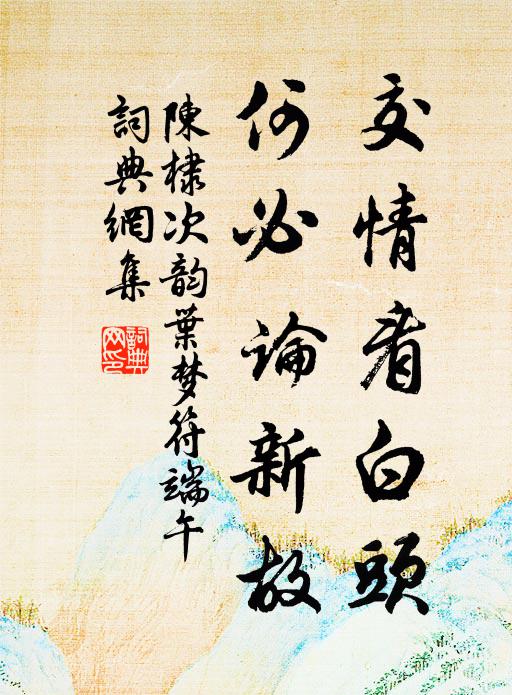 交情看白頭
何必論新故
陳棣次韵葉梦符端午
詞典網集
詞典网印